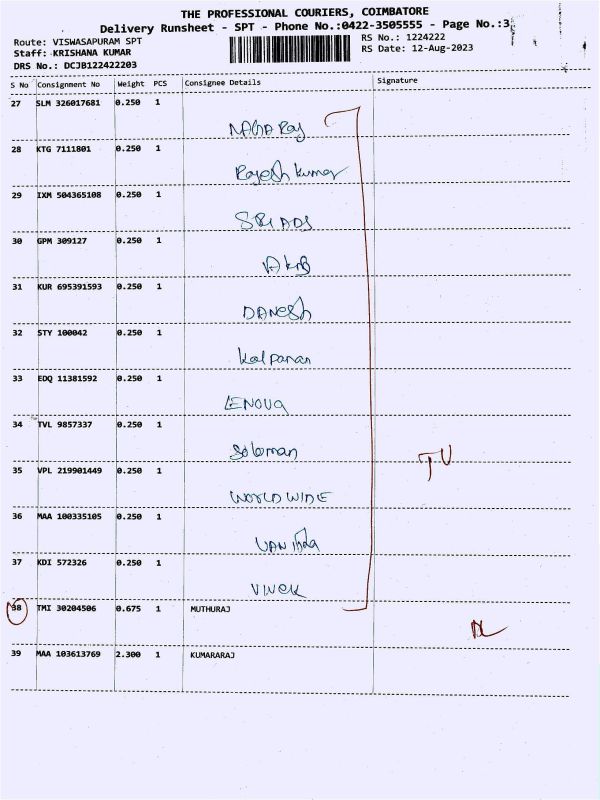 THE PROFESSIONAL COURIERS, COIMBATORE
Delivery Runsheet - SPT - Phone No.:0422-3505555 - Page No.:3
Route: VISWASAPURAM SPT
Staff: KRISHANA KUMAR
DRS No.: DCJB122422203
RS No.: 1224222
RS Date: 12-Aug-2023
S No Consignment No Weight PCS Consignee Details Signature
27 SLM 326017681 0.250 1
NAGA Raj
28 KTG 7111801 0.250 1
Rajesh Kumar
29 IXM 504365108 0.250 1
SRI ADS
30 GPM 309127 0.250 1
31 KUR 695391593 0.250 1
DANESh
32 STY 100042 0.250 1
Kalpanan
33 EDQ 11381592 0.250 1
LENOVA
34 TVL 9857337 0.250 1
Soloman
TV
35 VPL 219901449 0.250 1
WORLD WIDE
36 MAA 100335105 0.250 1
VANitha
37 KDI 572326 0.250 1
VIVEK
38 TMI 30204506 0.675 1 MUTHURAJ
39 MAA 103613769 2.300 1 KUMARARAJ